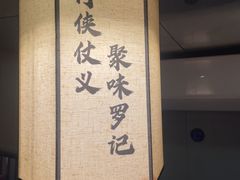 行侠仗义
聚味罗记